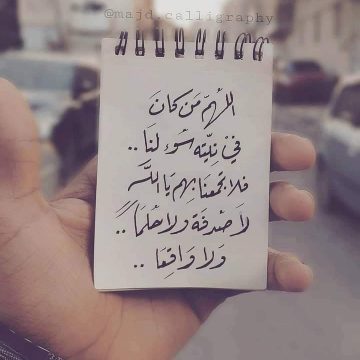 @majd.calligraphy
اللهمّ مَن كانَ
في نيّته سُوء لنا ..
فلا تجمعنا بهم يا اللّه
لا صُدفة ولا حُلماً ..
ولا واقِعا ..